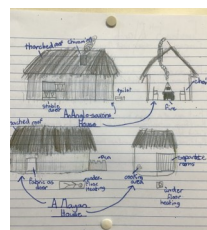 thatched roof chimney
toilet
stable door
chair
fire
An Anglo-saxons
House
thatched roof
fabric as
door
under
floor
heating
cooking
area
separate
rooms
under
floor
heating
A Mayan
House